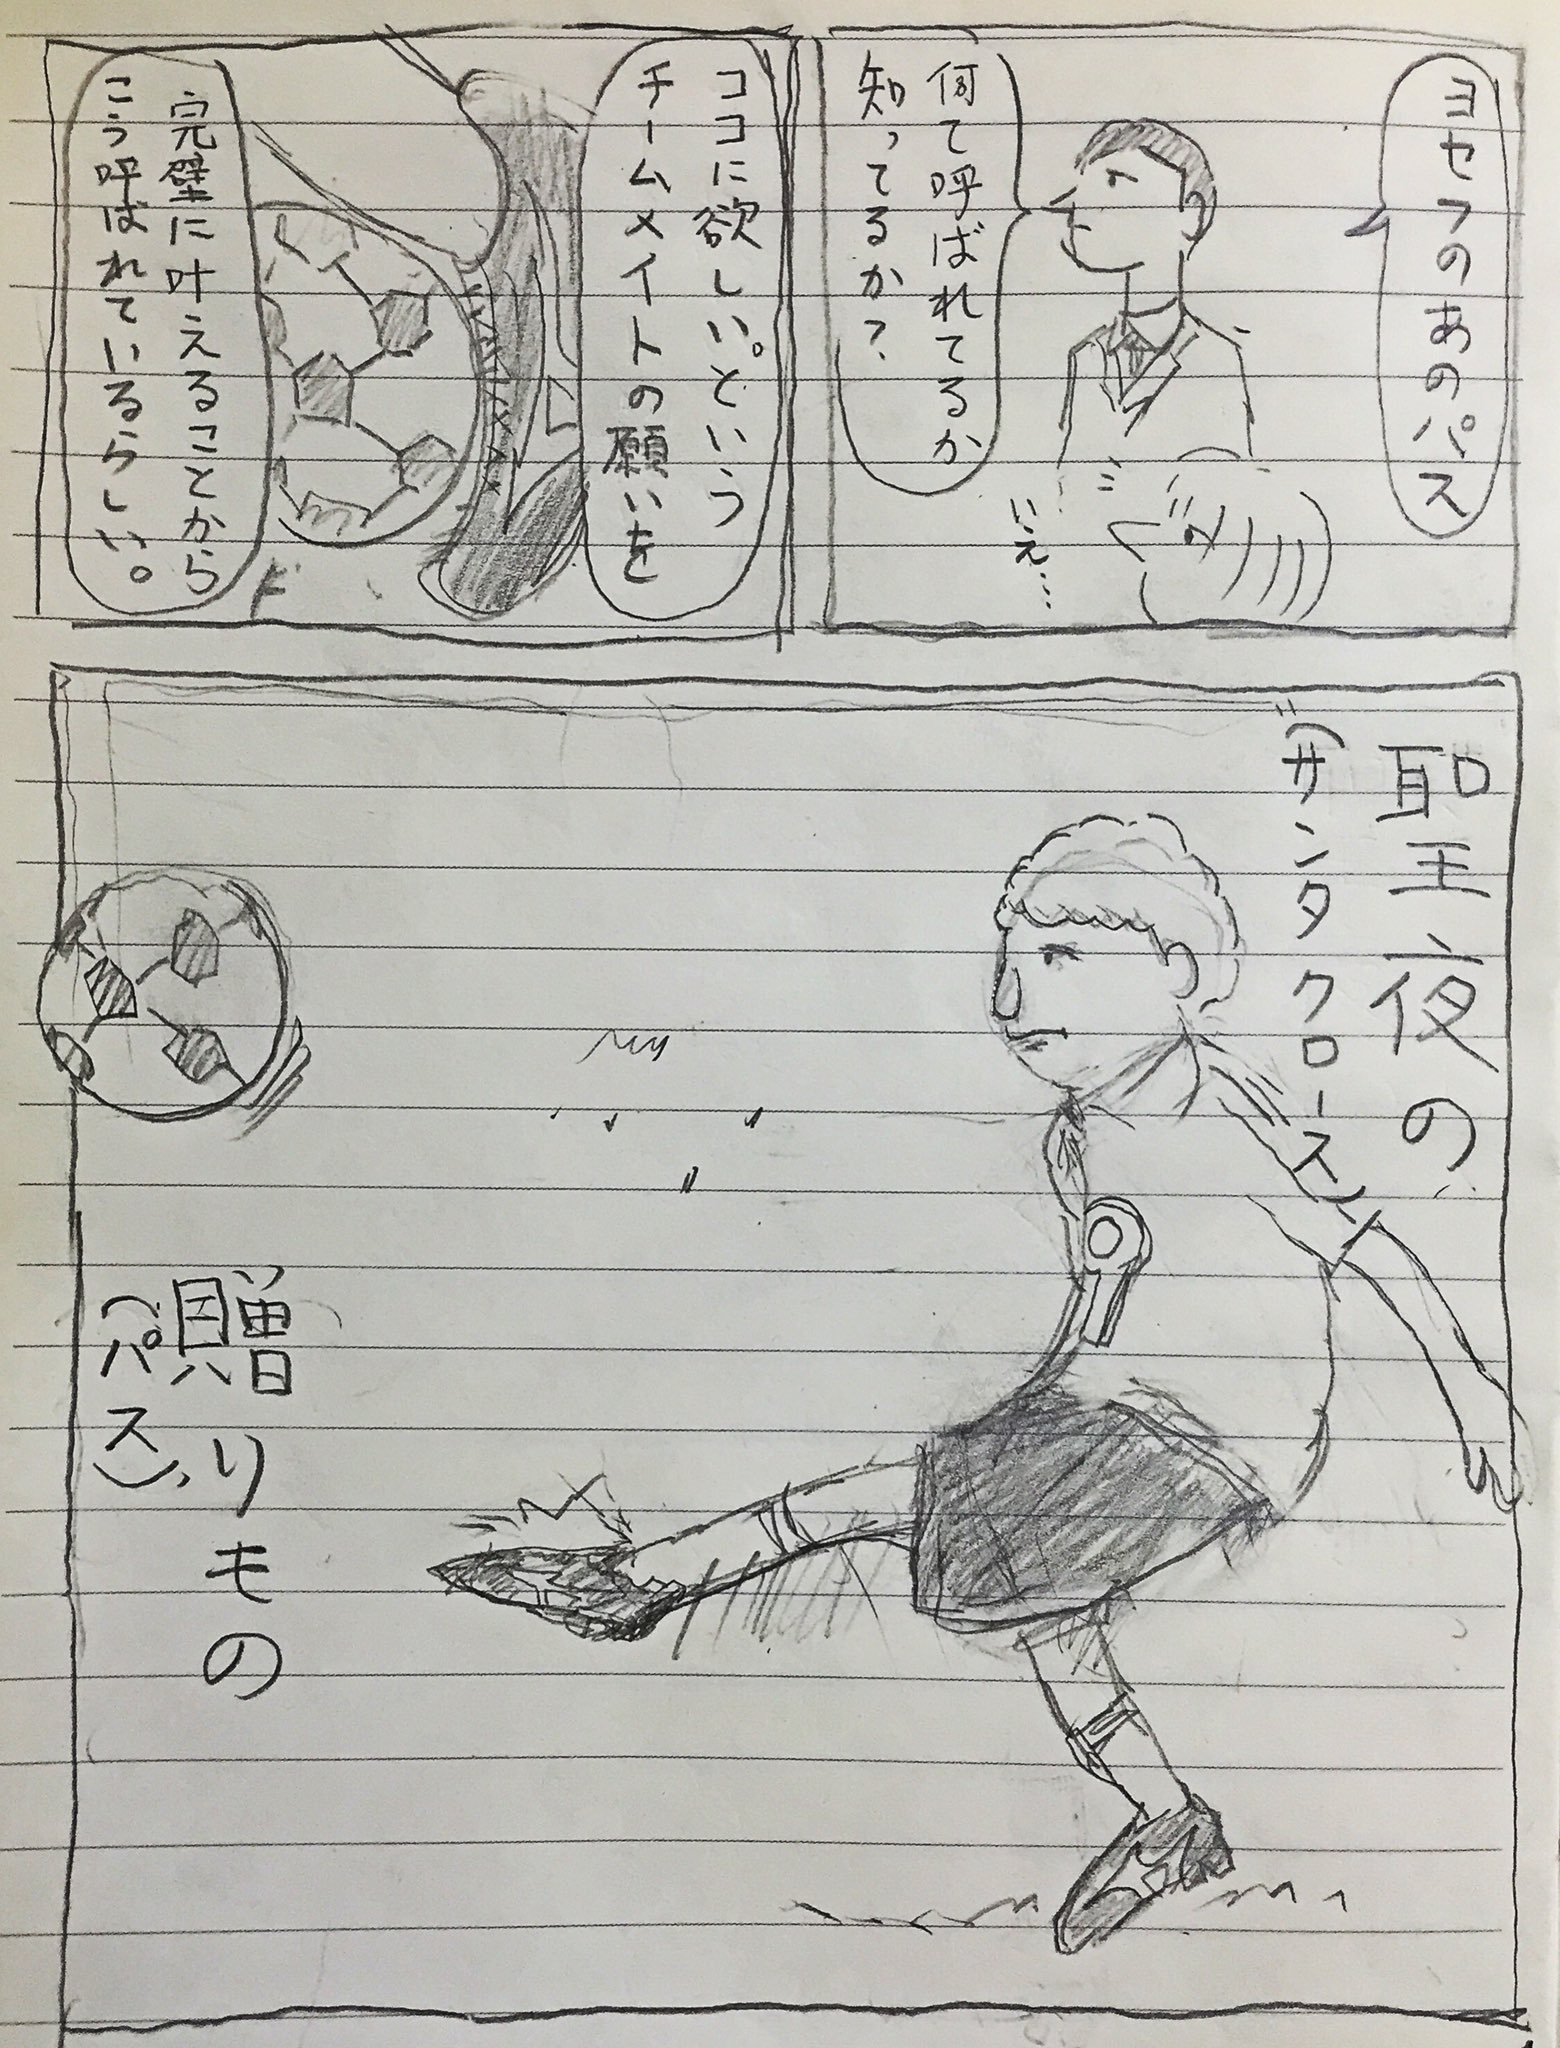 ヨセフのあのパス
何て呼ばれてるか
知ってるか?
いえ…
ココに欲しい。という
チームメイトの願いを
完璧に叶えることから
こう呼ばれているらしい。
聖夜の
"(サンタクロース)
贈りもの
(パス)"